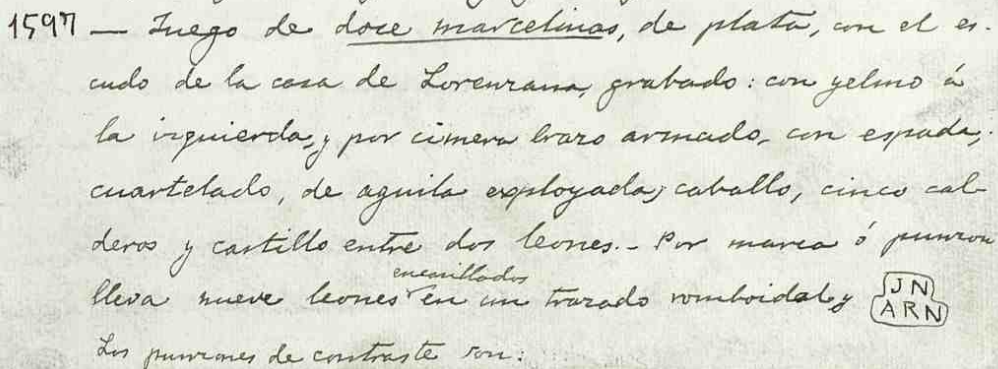 1597 — Juego de doce marcelinas, de plata, con el es-
cudo de la casa de Lorenzana, grabado: con yelmo á
la izquierda, y por cimera brazo armado, con espada,
cuartelado, de aguila exployada, caballo, cinco cal-
deros y castillo entre dos leones.- Por marca ó punzon
encasillados
lleva nueve leones en un trazado romboidal y JN ARN
Los punzones de contraste son: